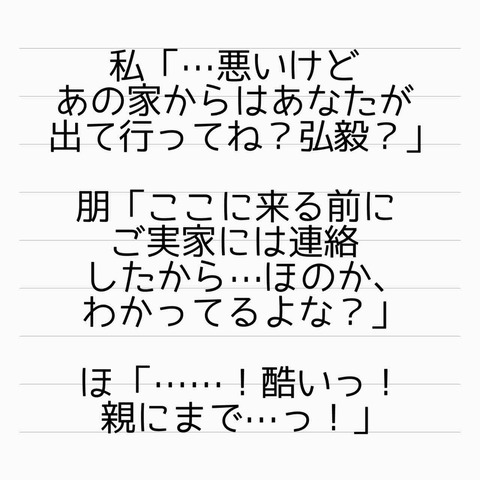 私「…悪いけど
あの家からはあなたが
出て行ってね？弘毅？」
朋「ここに来る前に
ご実家には連絡
したから…ほのか、
わかってるよな？」
ほ「……！酷いっ！
親にまで…っ！」